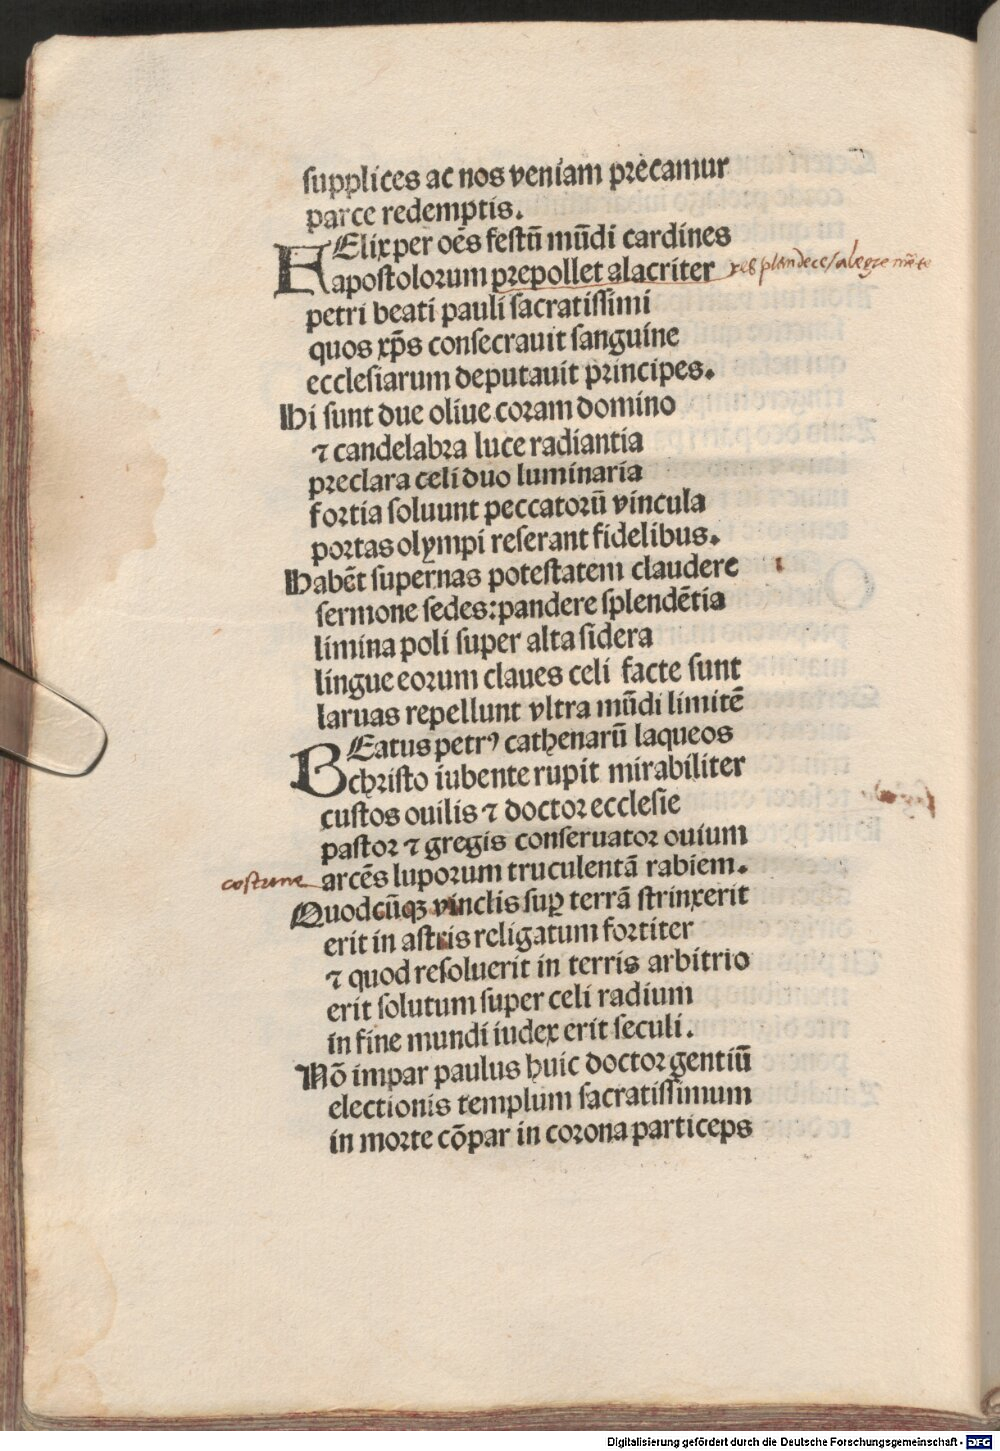 supplices ac nos veniam precamur
parce redemptis.
FElix per oēs festū mūdi cardines
apostolorum prepollet alacriter resplandece/alegremēte
petri beati pauli sacratissimi
quos xp̄s consecrauit sanguine
ecclesiarum deputauit principes.
Hi sunt due oliue coram domino
⁊ candelabra luce radiantia
preclara celi duo luminaria
fortia soluunt peccatorū vincula
portas olympi reserant fidelibus.
Habēt supernas potestatem claudere
sermone sedes:pandere splendētia
limina poli super alta sidera
lingue eorum claues celi facte sunt
laruas repellunt vltra mūdi limitē
BEatus petrꝰ cathenarū laqueos
christo iubente rupit mirabiliter
custos ouilis ⁊ doctor ecclesie
pastor ⁊ gregis conseruator ouium
arcēs luporum truculentā rabiem.
Quodcūqꝫ vinclis suꝑ terrā strinxerit
erit in astris religatum fortiter
⁊ quod resoluerit in terris arbitrio
erit solutum super celi radium
in fine mundi iudex erit seculi.
Nō impar paulus huic doctor gentiū
electionis templum sacratissimum
in morte cōpar in corona particeps
Digitalisierung gefördert durch die Deutsche Forschungsgemeinschaft - DFG